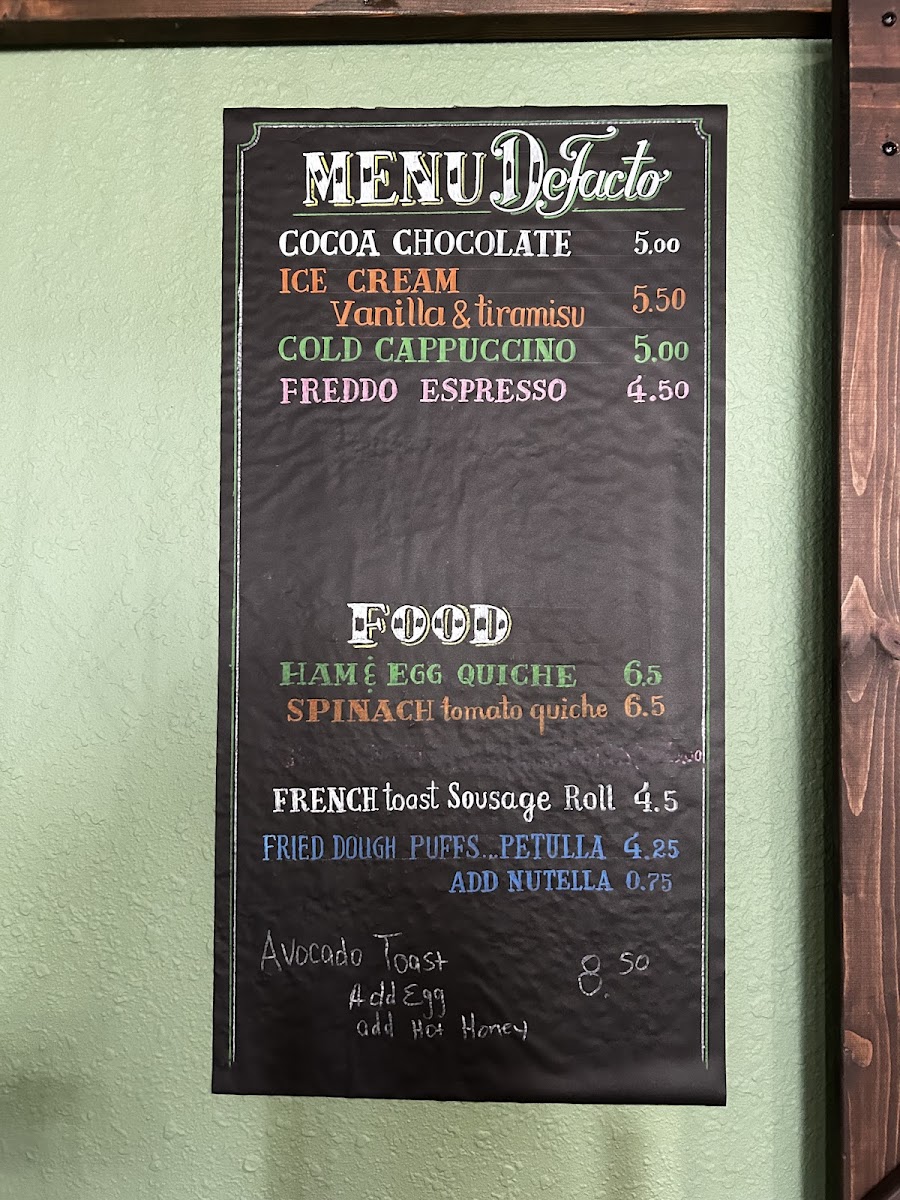 MENU DeFacto
COCOA CHOCOLATE 5.00
ICE CREAM
Vanilla & tiramisu 5.50
COLD CAPPUCCINO 5.00
FREDDO ESPRESSO 4.50
FOOD
HAM & EGG QUICHE 6.5
SPINACH tomato quiche 6.5
FRENCH toast Sousage Roll 4.5
FRIED DOUGH PUFFS...PETULLA 4.25
ADD NUTELLA 0.75
Avocado Toast 8.50
Add Egg
add Hot Honey